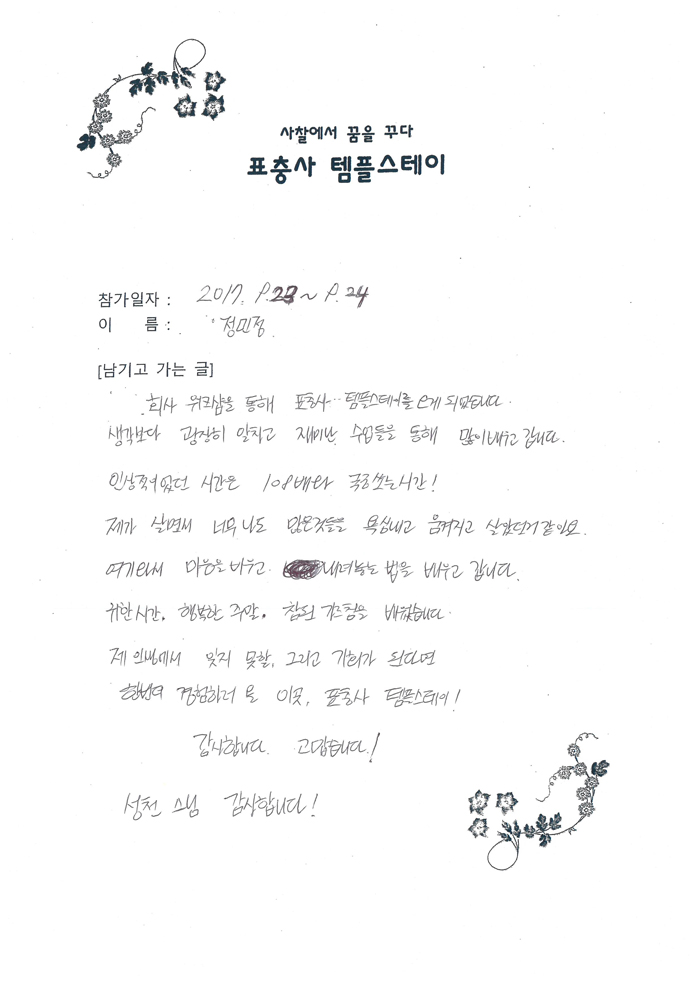 사찰에서 꿈을 꾸다
표충사 템플스테이
참가일자 : 2017. 9.23 ~ 9.24
이 름 : 정민정
[남기고 가는 글]
회사 워크샵을 통해 표충사 템플스테이를 오게 되었습니다.
생각보다 굉장히 알차고 재미난 수업들을 통해 많이 배우고 갑니다.
인상깊었던 시간은 108배와 국궁쏘는시간!
제가 살면서 너무나도 많은것들을 욕심내고 움켜지고 살았던거같아요.
여기와서 마음을 비우고 내려놓는 법을 배우고 갑니다.
귀한시간, 행복한 주말, 참된 가르침을 배웠습니다.
제 인생에서 잊지 못할, 그리고 기회가 된다면
한번더 경험하러 올 이곳, 표충사 템플스테이!
감사합니다. 고맙습니다!
성천 스님 감사합니다!